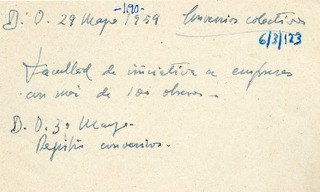 -190-
D. O. 29 Mayo 1959 Convenios colectivos
6/3/123
Facultad de iniciativa a empresas
con más de 100 obreros -
D. O. 30 Mayo -
Registro convenios -